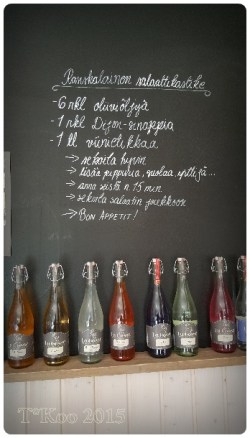 Ranskalainen salaattikastike
- 6 rkl oliiviöljyä
- 1 rkl Dijon-sinappia
- 1 tl viinietikkaa
→ sekoita hyvin
→ lisää pippuria, suolaa, yrttejä...
→ anna seistä n. 15 min
→ sekoita salaatin joukkoon
→ BON APPETIT!
T°Koo 2015